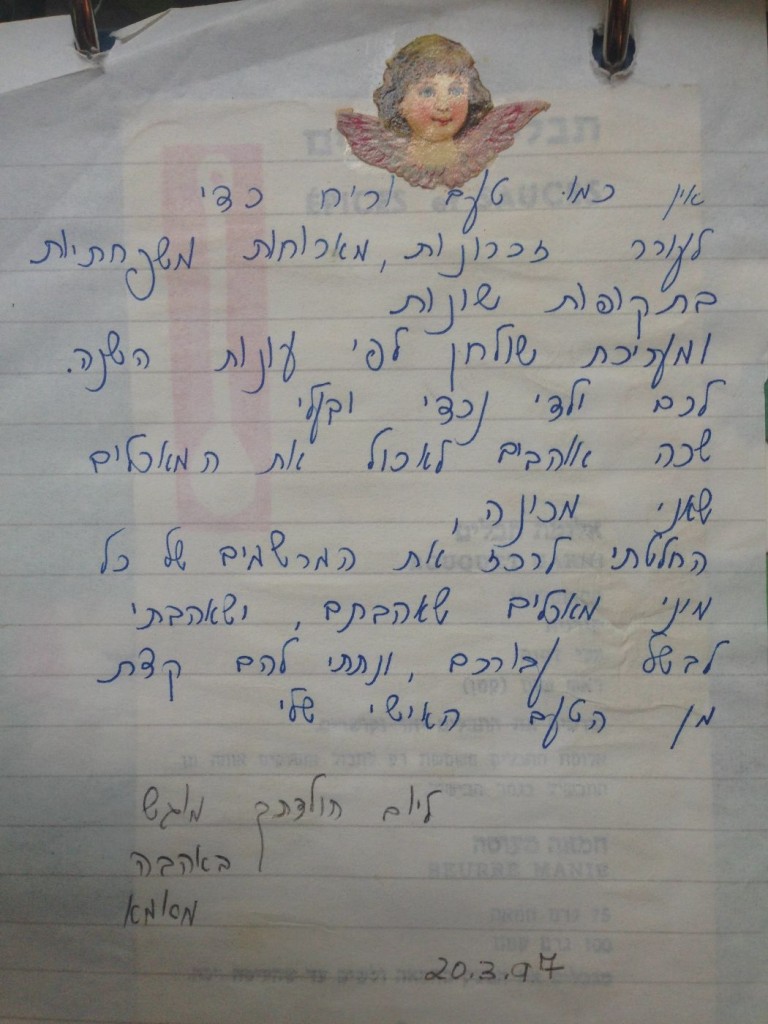 אין כמו טעם וריח כדי
לעורר זכרונות, מארוחות משפחתיות
בתקופות שונות
ומעריכת שולחן לפי עונות השנה.
לכם ילדי נכדי ובעלי
שכה אוהבים לאכול את המאכלים
שאני מכינה,
החלטתי לרכז את המרשמים של כל
מיני מאכלים שאהבתם, ושאהבתי
לבשל עבורכם, ונתתי להם קצת
מן הטעם האישי שלי
ליום הולדתך מוגש
באהבה
מאמא
20.3.97